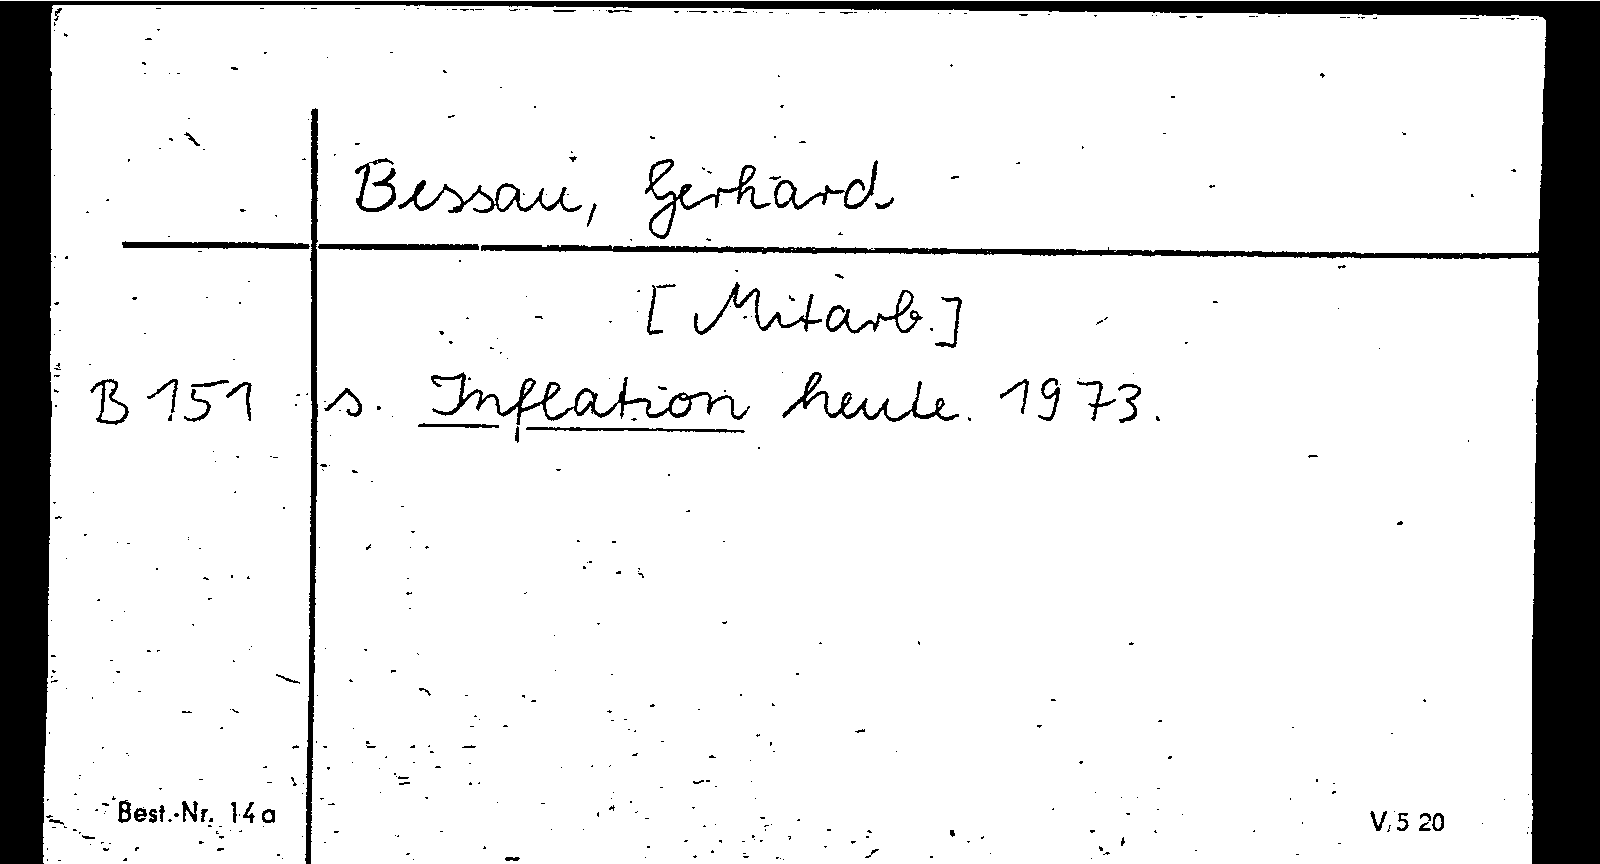 Bessau, Gerhard
[Mitarb.]
B 151 s. Inflation heute. 1973.
Best.-Nr. 14a V, 5 20